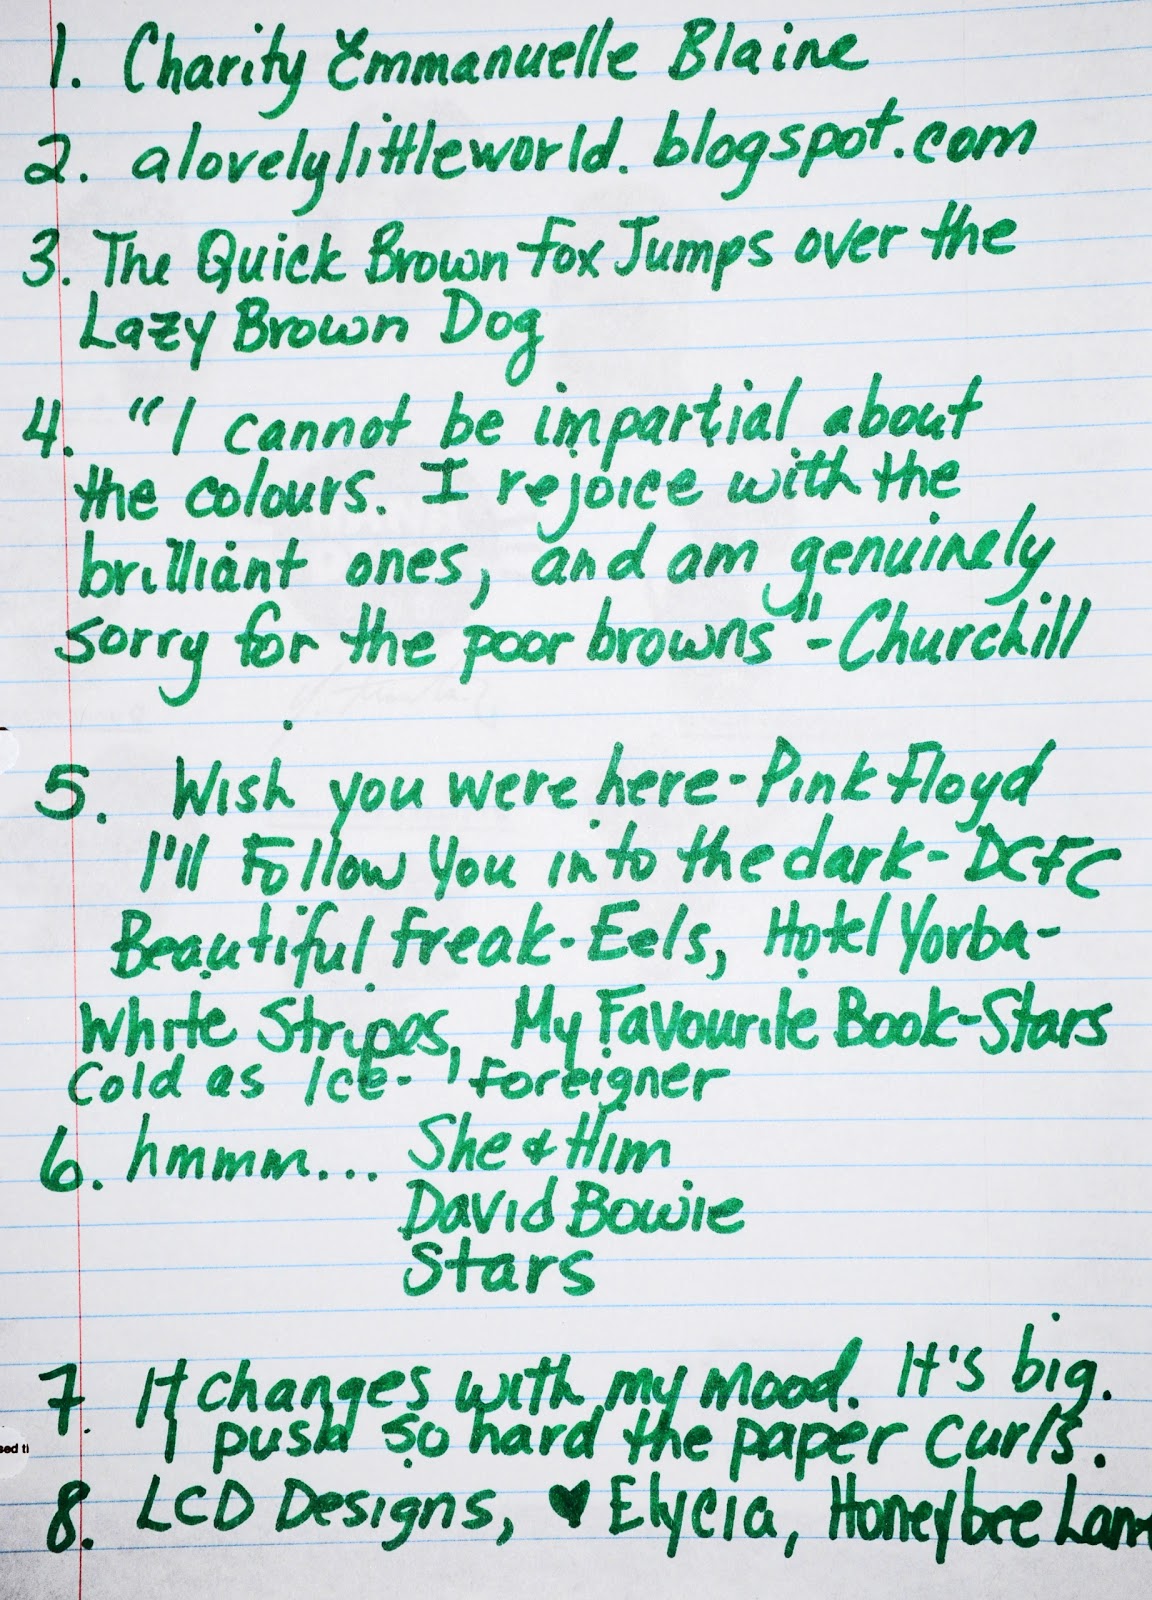 1. Charity Emmanuelle Blaine
2. alovelylittleworld.blogspot.com
3. The Quick Brown Fox Jumps over the
Lazy Brown Dog
4. "I cannot be impartial about
the colours. I rejoice with the
brilliant ones, and am genuinely
sorry for the poor browns" - Churchill
5. Wish you were here - Pink Floyd
I'll Follow You into the dark - DCFC
Beautiful Freak - Eels, Hotel Yorba -
White Stripes, My Favourite Book - Stars
Cold as Ice - Foreigner
6. hmmm... She & Him
David Bowie
Stars
7. It changes with my mood. It's big.
I push so hard the paper curls.
sed ti
8. LCD Designs, ♥ Elycia, Honeybee Lane